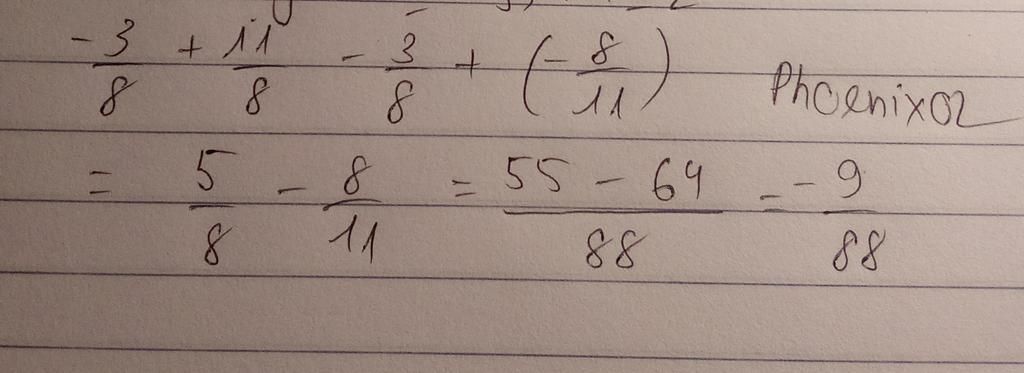 -3/8 + 11/8 - 3/8 + (-8/11) Phoenix02
= 5/8 - 8/11 = 55 - 64/88 = -9/88